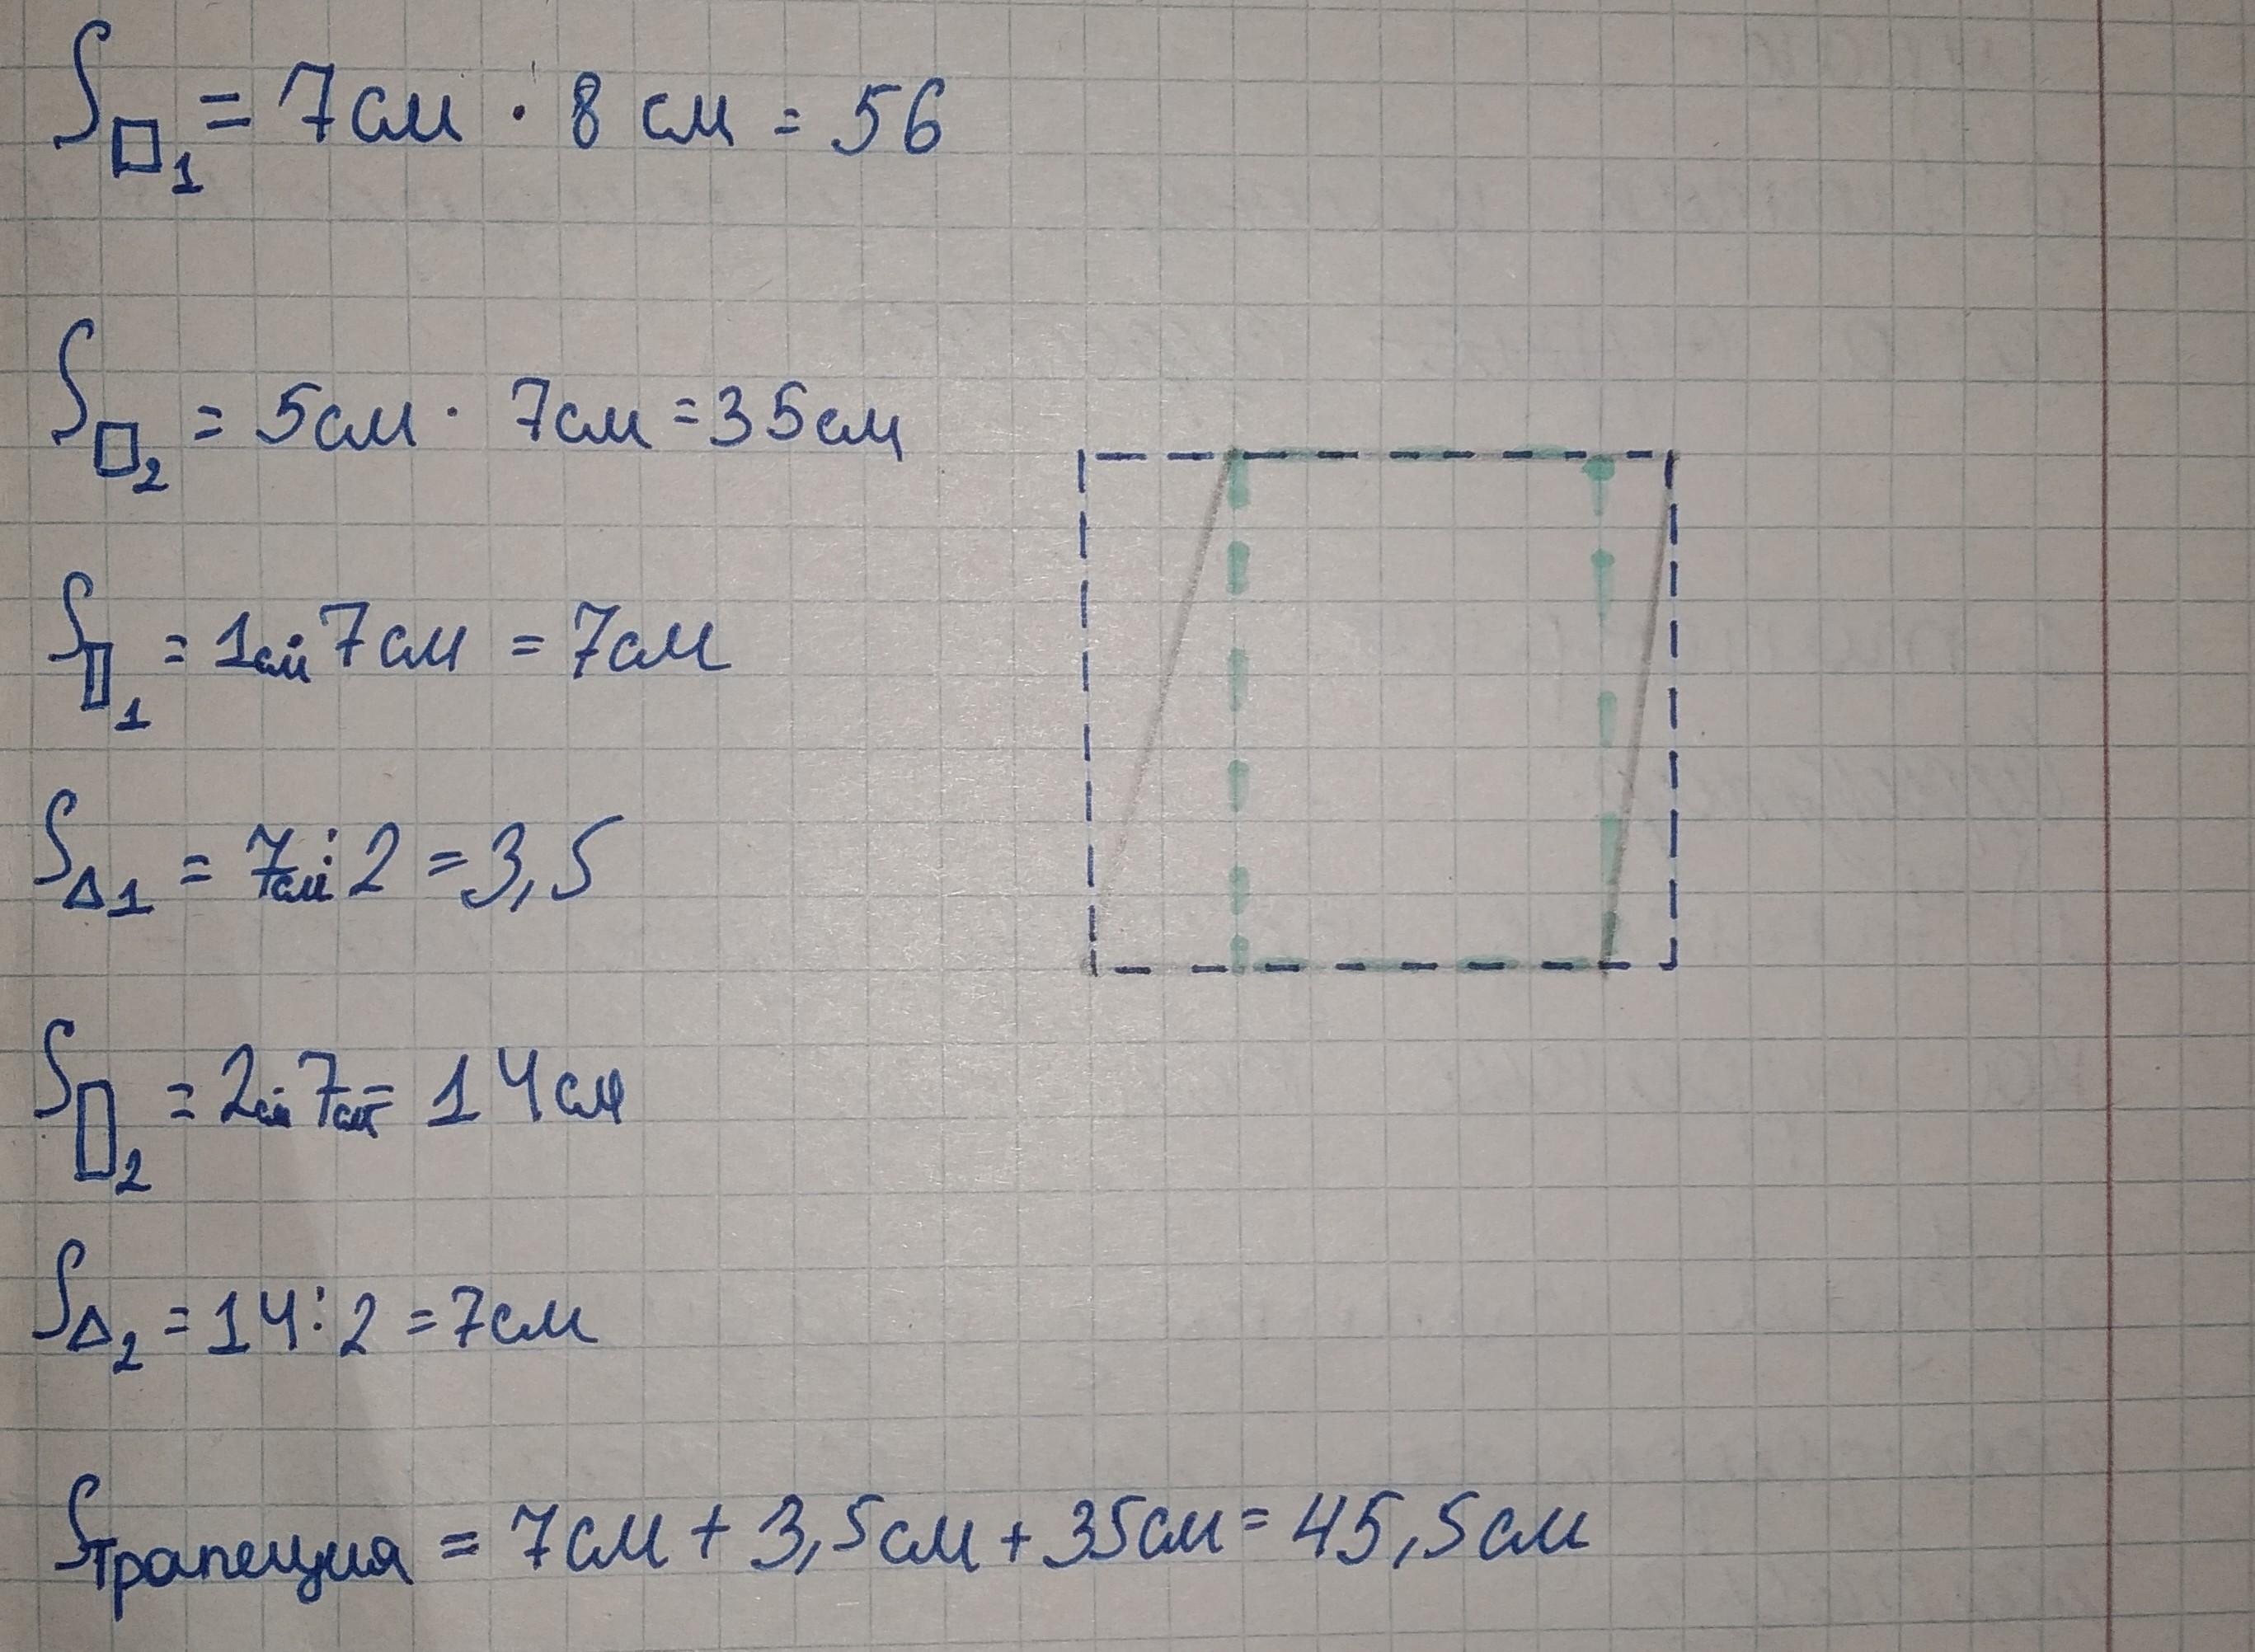 S□1 = 7см · 8 см = 56
S□2 = 5см · 7см = 35см
S▯1 = 1см · 7см = 7см
S△1 = 7см : 2 = 3,5
S▯2 = 2см · 7см = 14см
S△2 = 14 : 2 = 7см
Sтрапеция = 7см + 3,5см + 35см = 45,5см